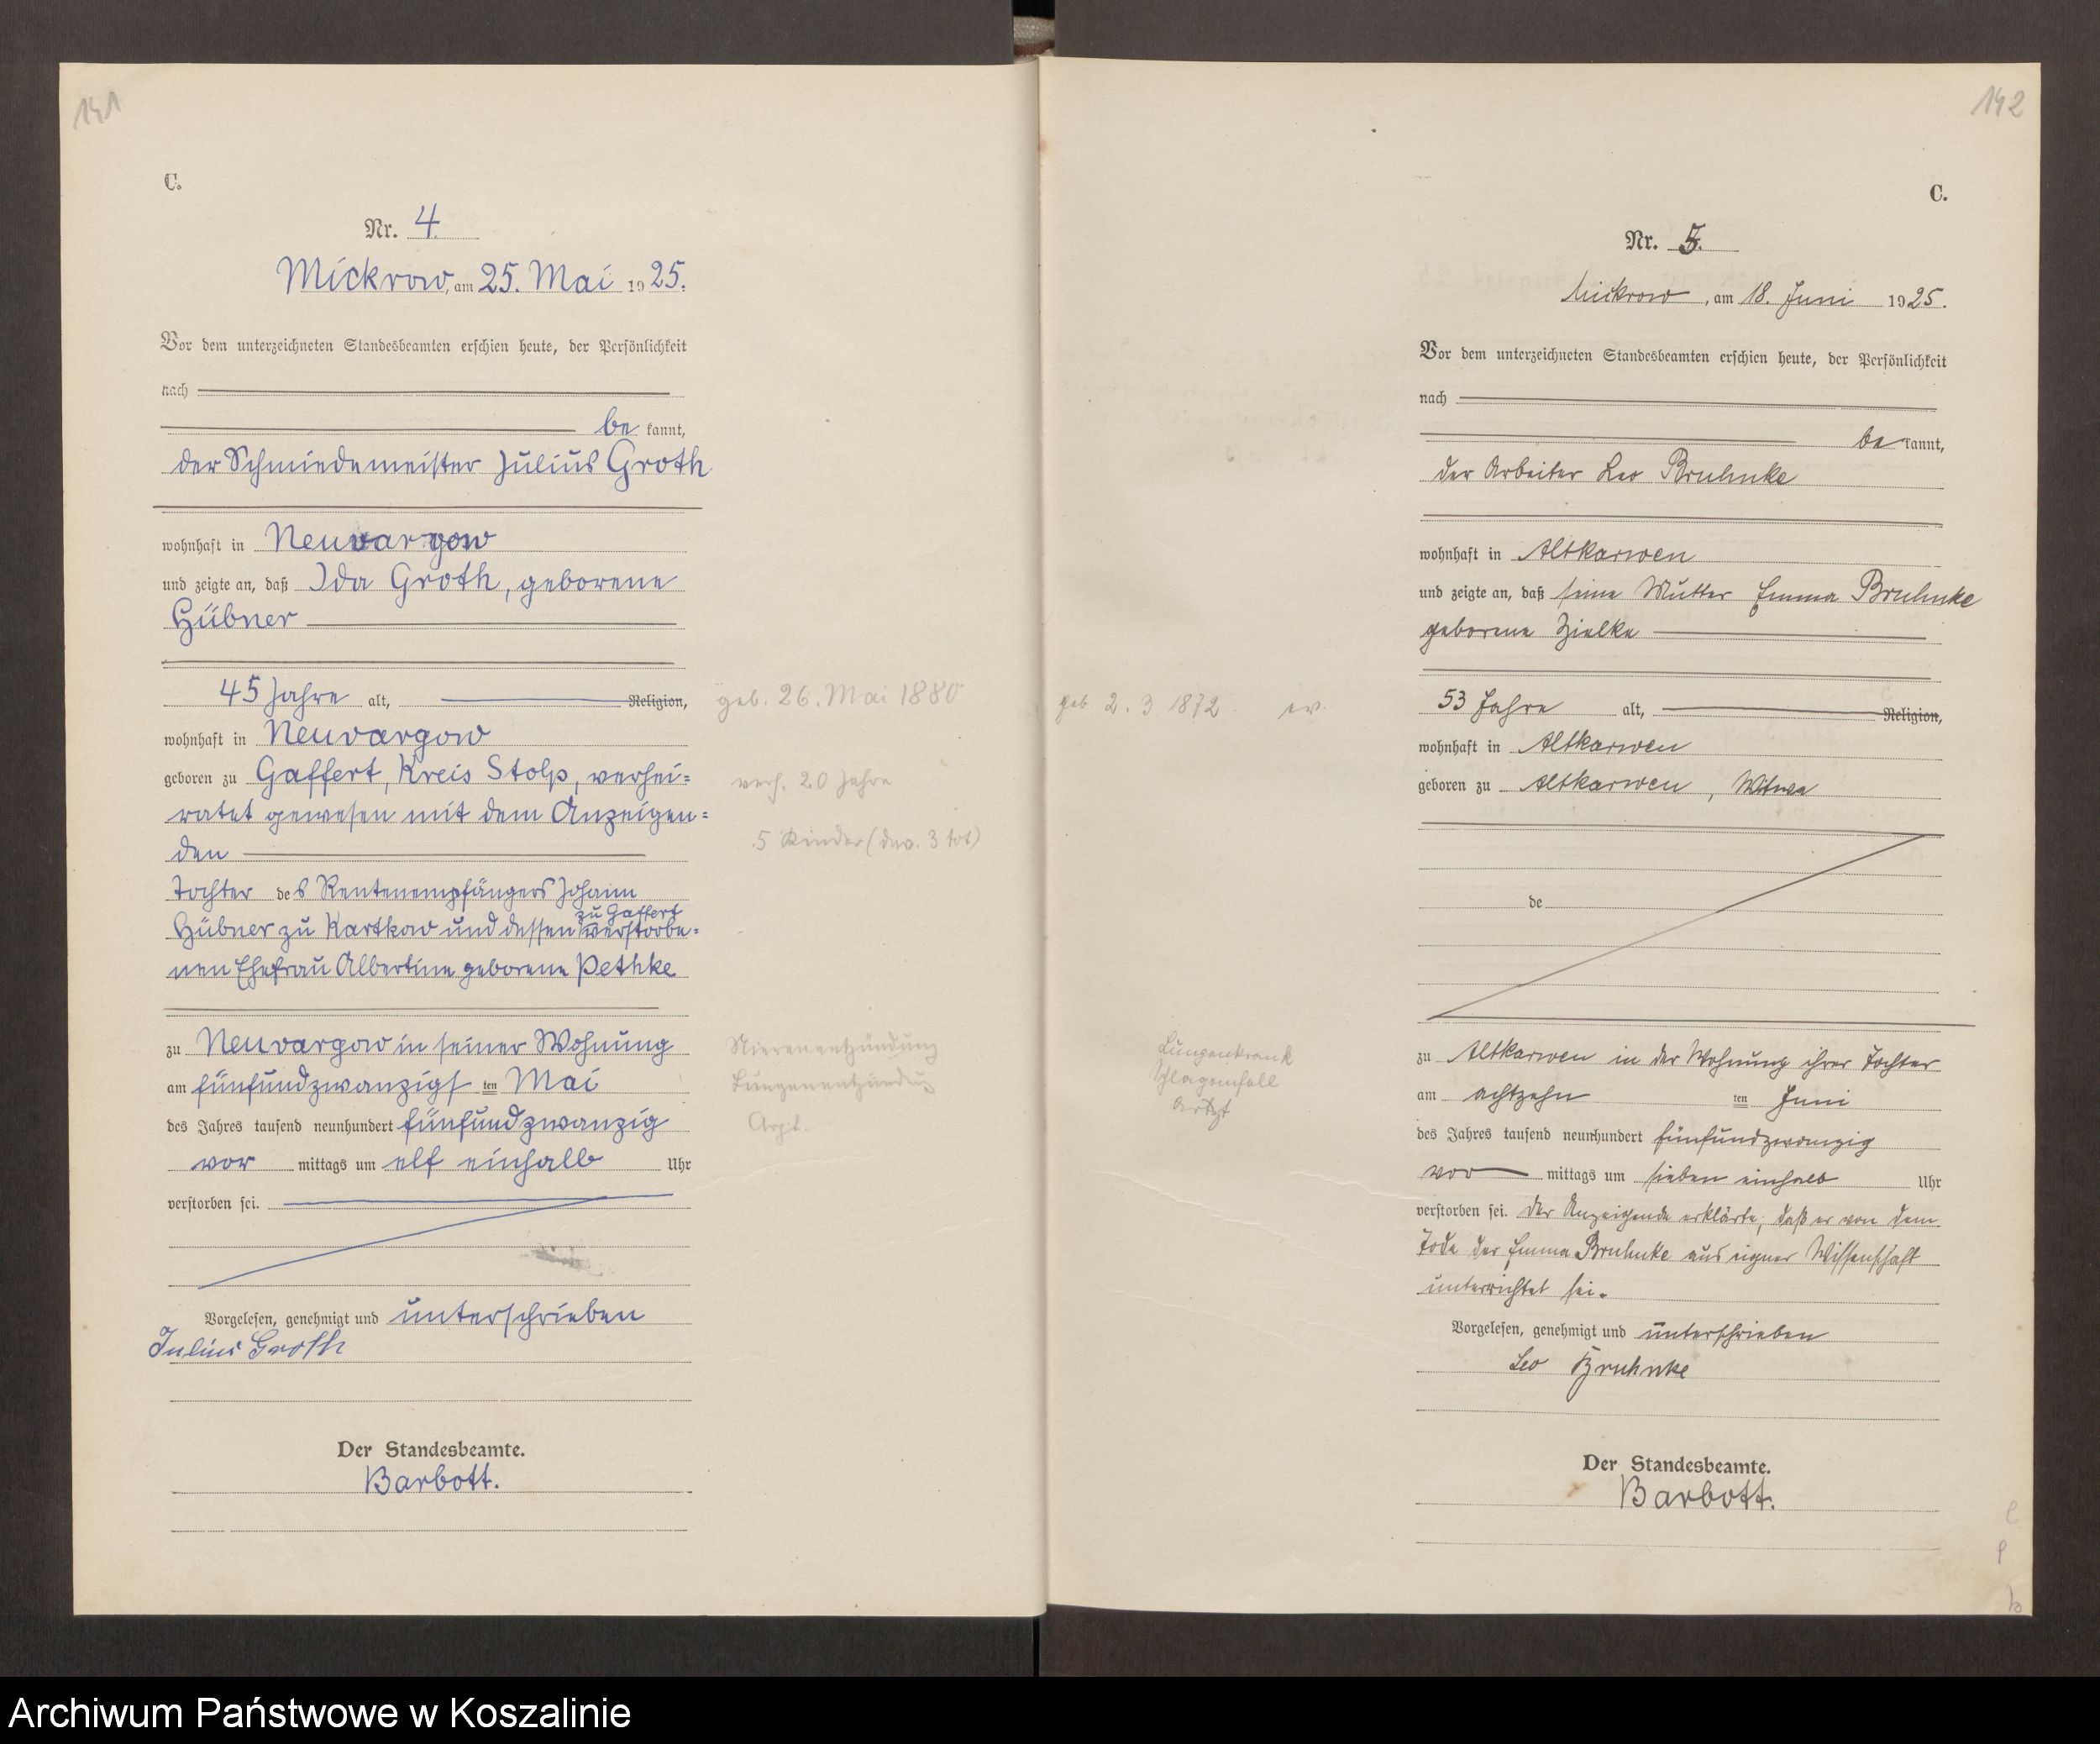 141
C.
Nr. 4.
Mickrow, am 25. Mai 1925.
Vor dem unterzeichneten Standesbeamten erschien heute, der Persönlichkeit
nach
be kannt,
der Schmiedemeister Julius Groth
wohnhaft in Neuvargow
und zeigte an, daß Ida Groth, geborene
Hübner
45 Jahre alt, Religion,
geb. 26. Mai 1880
wohnhaft in Neuvargow
geboren zu Gaffert, Kreis Stolp, verhei=
verh. 20 Jahre
ratet gewesen mit dem Anzeigen=
5 Kinder (dav. 3 tot)
den
Tochter des Rentenempfängers Johann
zu Gaffert
Hübner zu Kartkow und dessen verstorbe=
nen Ehefrau Albertine geborene Pethke
zu Neuvargow in seiner Wohnung
Nierenentzündung
am fünfundzwanzigs ten Mai
Lungenentzündung
des Jahres tausend neunhundert fünfundzwanzig
Arzt.
vor mittags um elf einhalb Uhr
verstorben sei.
Vorgelesen, genehmigt und unterschrieben
Julius Groth
Der Standesbeamte.
Barbott.
142
C.
Nr. 5.
Mickrow, am 18. Juni 1925.
Vor dem unterzeichneten Standesbeamten erschien heute, der Persönlichkeit
nach
be kannt,
der Arbeiter Leo Bruhnke
wohnhaft in Altkarwen
und zeigte an, daß seine Mutter Emma Bruhnke
geborene Zielke
geb 2. 3 1872. ev.
53 Jahre alt, Religion,
wohnhaft in Altkarwen
geboren zu Altkarwen, Witwe
de
Lungenkrank
zu Altkarwen in der Wohnung ihrer Tochter
Schlaganfall
am achtzehn ten Juni
Artzt
des Jahres tausend neunhundert fünfundzwanzig
vor mittags um sieben einhalb Uhr
verstorben sei. Der Anzeigende erklärte, daß er von dem
Tode der Emma Bruhnke aus eigner Wissenschaft
unterrichtet sei.
Vorgelesen, genehmigt und unterschrieben
Leo Bruhnke
Der Standesbeamte.
Barbott.
Archiwum Państwowe w Koszalinie